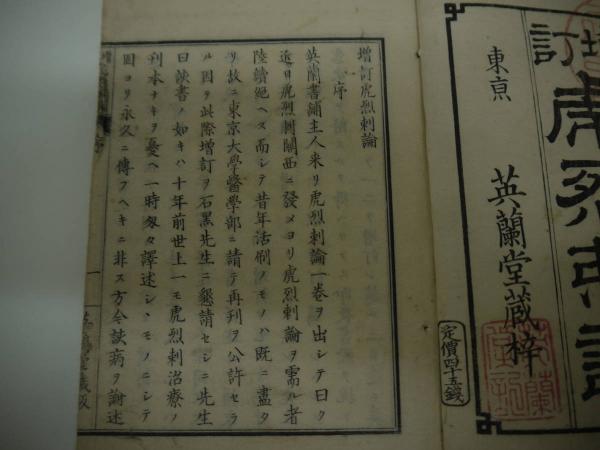 增訂虎烈剌論
東亰
英蘭堂蔵梓
定價四十五錢
增訂虎烈剌論
序
英蘭書鋪主人来リ虎烈剌論一巻ヲ出シテ曰ク
近日虎烈剌關西ニ發メヨリ虎烈剌論ヲ需ル者
陸續絶ヘス而シテ昔年活刷ノモノハ既ニ盡タ
リ故ニ東京大學醫學部ニ請テ再刊ヲ公許セラ
ル因ヲ此際增訂ヲ石黒先生ニ懇請セシニ先生
曰該書ノ如キハ十年前世上一モ虎烈剌治療ノ
刊本ナキヲ憂ヘ一時匆々譯述シヽモノニシテ
固ヨリ永久ニ傳フヘキニ非ス方今該病ヲ論述
一